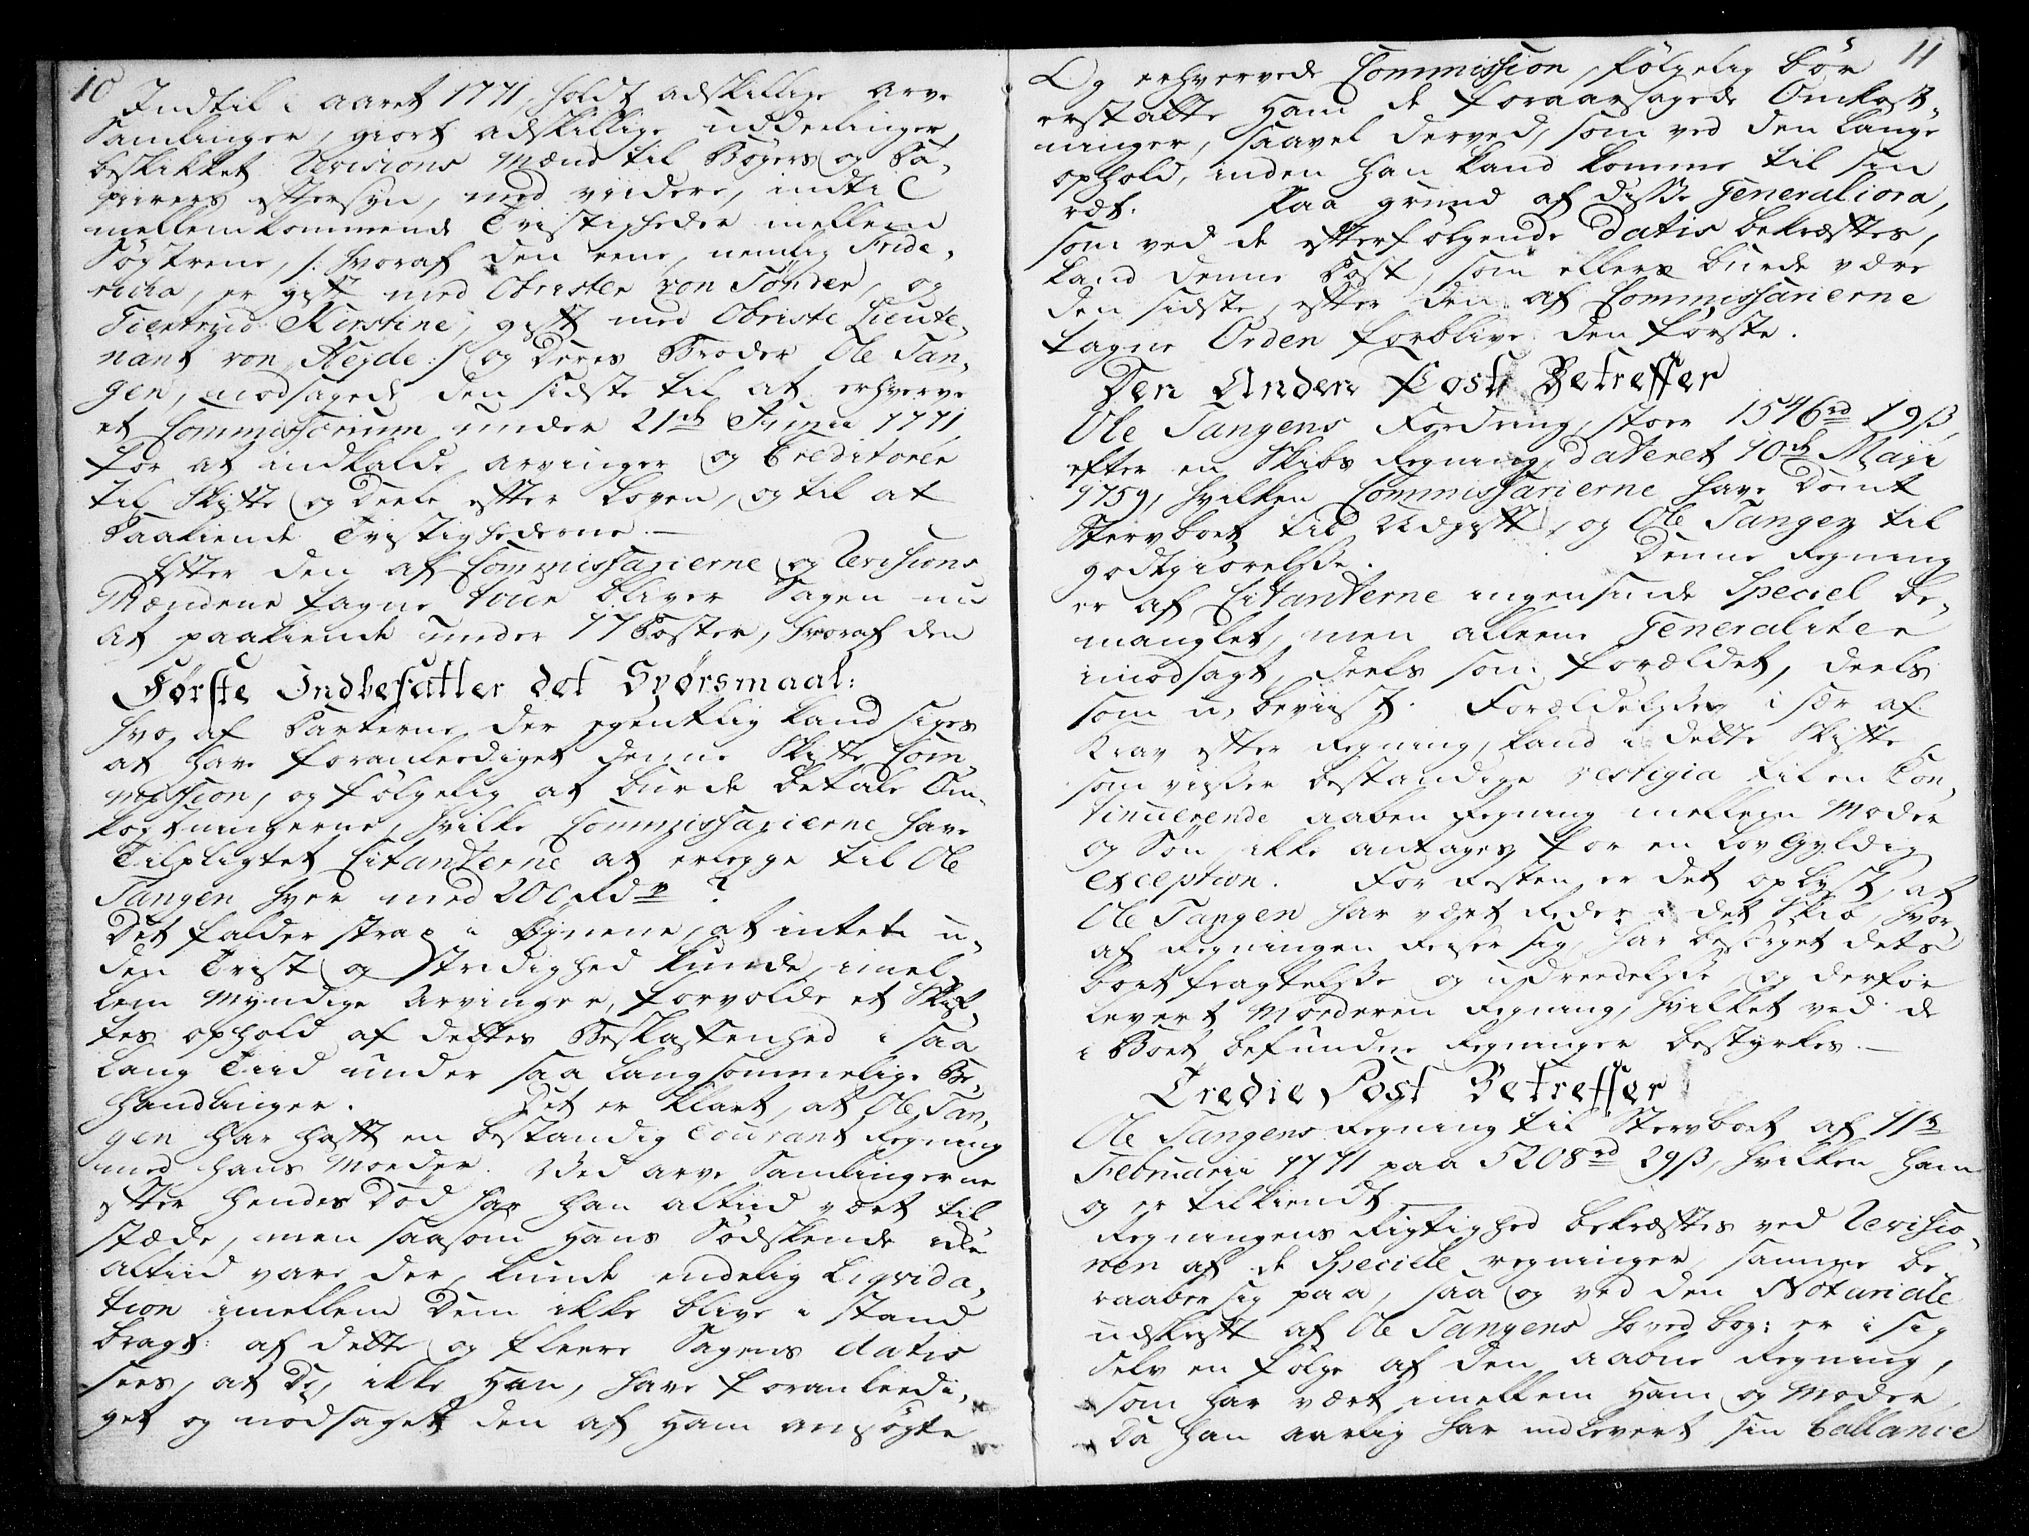 10
Indtil i aaret 1771, holdt adskillige Arve
Samlinger, giort adskillige uddeelinger,
beskikket Revisions Mænd til Bøgers og Pa-
pirers eftersyn, med viidere, indtil
mellemkommende Tvistigheder mellem
Søstrene, /: hvoraf den eene, nemlig Fride-
ricia, er gift med Obrister von Sønder, og
Giertryd Kirstine, gift med Obriste Lieute-
nant von Heyde :/ og Deres Broder Ole Tan-
gen, nødsagede den sidste til at erhverve
et Commissorium under 21de Junii 1771,
for at indkalde arvinger og Creditorer
til Skifte og Deele efter Loven, og til at
Paakiende Tvistighederne. —
Efter den af Commissarierne og Revisions
Mændene tagne tour bliver Sagen nu
at paakiende under 17 Poster, hvoraf den
Første Indbefatter det Spørsmaal:
hvo af Parterne der egentlig kand siges
at have foranlediget denne Skifte Com-
mission, og følgelig at burde betale Om-
kostningerne, hvilke Commissarierne have
Tilpligtet Citanterne at erlegge til Ole
Tangen hver med 200 Rdr ?
Det falder strax i Øynene, at intet u-
den Tvist og Stridighed kunde imel-
lem Myndige Arvinger, forvolde et Skif-
tes ophold af dettes Beskaffenhed i saa
lang Tiid under saa langsommelige Be-
handlinger. Det er klart, at Ole Tan-
gen har haft en bestandig Courant Regning
med hans Moeder. Ved arve Samlingerne
efter hendes Død har han altiid vært til
stæde, men saasom Hans Sødskende ikke
altiid vare der, kunde endelig Liqvida-
tion imellem Dem ikke blive i stand
bragt: af dette og fleere Sagens datis
sees, at De, ikke Han, have foranleedi-
get og nødsaget den af Ham ansøgte
11
Og erhvervede Commission, følgelig bør
erstatte Ham de foraarsagede Omkost-
ninger, saavel derved, som ved den lange
ophold, inden han kand komme til sin
ræt. Paa grund af disse Generaliora,
som ved de efterfølgende datis bekræftes,
kand denne Post, som ellers burde være
den sidste, efter den af Commissarierne
tagne Orden forblive den første.
Den Anden Post Betreffer
Ole Tangens Fordring, stoer 1546 rd 19 ß,
efter en Skibs Regning, dateret 10de Maji
1759, hvilken Commissarierne have Dømt
Stervboet til Udgift, og Ole Tangen til
godtgiørelse. Denne Regning
er af Citanterne ingensinde Speciel be-
manglet, men alleene Generaliter
imodsagt, deels som forældet, deels
som u-beviist. Forældelsen i sær af
Krav efter Regning, kand i dette Skifte
som viiser bestandige vestigia til en Con-
tinuerende aaben Regning mellem Moder
og Søn, ikke antages for en Lov Gyldig
exception. For Resten er det oplyst, at
Ole Tangen har været Reder i det Skib, hvor-
af Regningen Reiser sig, har besørget dets
bortfragtelse og udreedelse, og derfor
levert Moederen Regning, hvilket ved de
i Boet befundne Regninger bestyrkes. —
Tredie Post Betreffer
Ole Tangens Regning til Stervboet af 11te
Februarii 1771 paa 5208 rd 29 ß, hvilken ham
og er tilkiendt. —
Regningens Rigtighed bekræftes ved Revisio-
nen af de Specielle regninger, samme be-
raaber sig paa, saa og ved den Notariale
udskrift af Ole Tangens Hoved bog: er i sig
selv en følge af den aabne Regning,
som har vært imellem Ham og Moder,
Da han aarlig har indlevert sin ballance